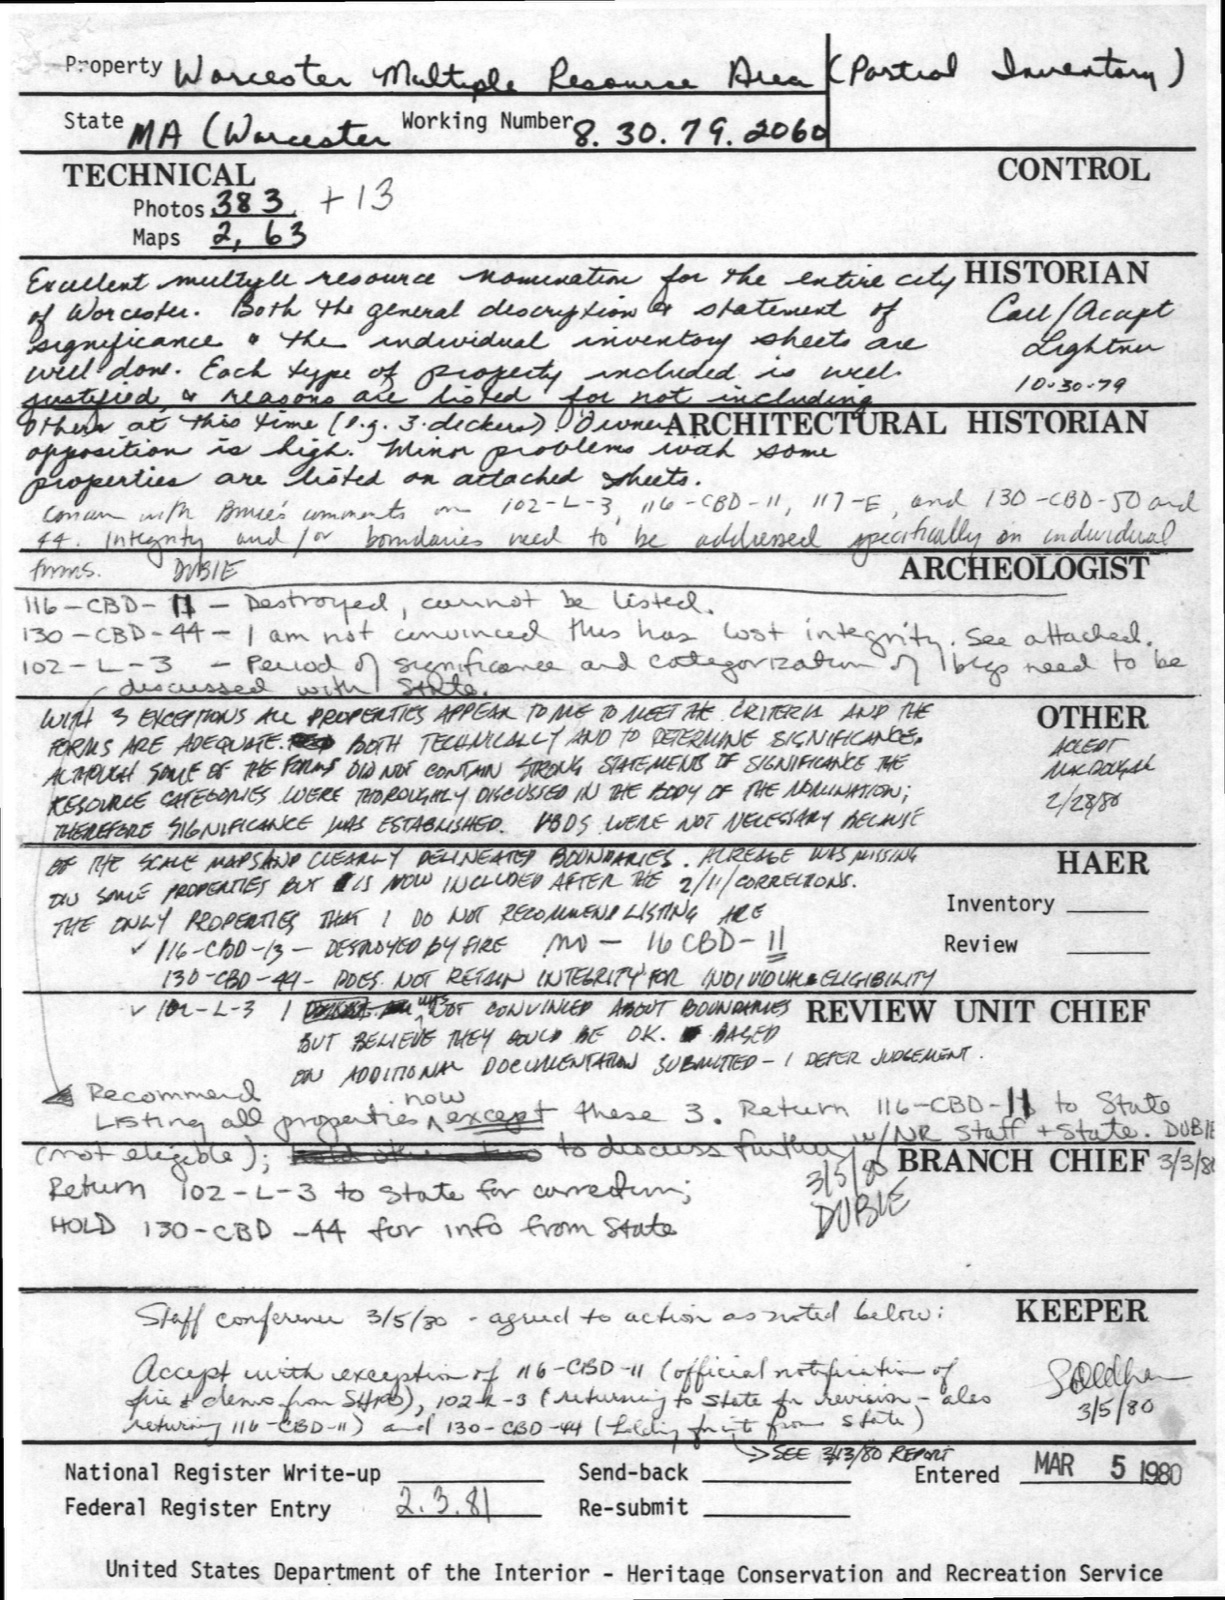 Property Worcester Multiple Resource Area (Partial Inventory)
State MA (Worcester Working Number 8.30.79.2060
TECHNICAL
CONTROL
Photos 383 + 13
Maps 2, 63
HISTORIAN
Excellent multiple resource nomination for the entire city
of Worcester. Both the general description & statement of
significance & the individual inventory sheets are
well done. Each type of property included is well
justified & reasons are listed for not including
Call/Accept
Lightner
10-30-79
others at this time (e.g. 3-deckers). Owner
ARCHITECTURAL HISTORIAN
opposition is high. Minor problems with some
properties are listed on attached sheets.
concur with Bruce's comments on 102-L-3, 116-CBD-11, 117-E, and 130-CBD-50 and
44. Integrity and/or boundaries need to be addressed specifically on individual
forms. DUBIE
ARCHEOLOGIST
116-CBD-11 - Destroyed, cannot be listed.
130-CBD-44 - I am not convinced this has lost integrity. See attached.
102-L-3 - Period of significance and categorization of bldgs need to be
discussed with State.
WITH 3 EXCEPTIONS ALL PROPERTIES APPEAR TO ME TO MEET THE CRITERIA AND THE
FORMS ARE ADEQUATE BOTH TECHNICALLY AND TO DETERMINE SIGNIFICANCE.
ALTHOUGH SOME OF THE FORMS DID NOT CONTAIN STRONG STATEMENTS OF SIGNIFICANCE THE
RESOURCE CATEGORIES WERE THOROUGHLY DISCUSSED IN THE BODY OF THE NOMINATION;
THEREFORE SIGNIFICANCE WAS ESTABLISHED. VBDS WERE NOT NECESSARY BECAUSE
OTHER
ACCEPT
MACDOUGAL
2/28/80
OF THE SCALE MAPS AND CLEARLY DELINEATED BOUNDARIES. ACREAGE WAS MISSING
ON SOME PROPERTIES BUT IS NOW INCLUDED AFTER THE 2/11/CORRECTIONS.
THE ONLY PROPERTIES THAT I DO NOT RECOMMEND LISTING ARE
✓ 116-CBD-13 - DESTROYED BY FIRE NO - 116 CBD-11
130-CBD-44 - DOES NOT RETAIN INTEGRITY FOR INDIVIDUAL ELIGIBILITY
HAER
Inventory
Review
✓ 102-L-3 I WAS NOT CONVINCED ABOUT BOUNDARIES
BUT BELIEVE THEY COULD BE OK. BASED
ON ADDITIONAL DOCUMENTATION SUBMITTED - I DEFER JUDGEMENT.
REVIEW UNIT CHIEF
Recommend
Listing all properties now except these 3. Return 116-CBD-11 to State
(not eligible); to discuss further w/NR Staff + State. DUBIE
3/3/80
BRANCH CHIEF
3/5/80
DUBIE
Return 102-L-3 to State for correction;
HOLD 130-CBD-44 for info from State
KEEPER
Staff conference 3/5/80 - agreed to action as noted below:
Accept with exception of 116-CBD-11 (official notification of
fire & demo from SHPO), 102-L-3 (returning to State for revision - also
returning 116-CBD-11) and 130-CBD-44 (holding for info from State)
3/5/80
→ SEE 3/13/80 REPORT
National Register Write-up Send-back Entered MAR 5 1980
Federal Register Entry 2.3.81 Re-submit
United States Department of the Interior - Heritage Conservation and Recreation Service